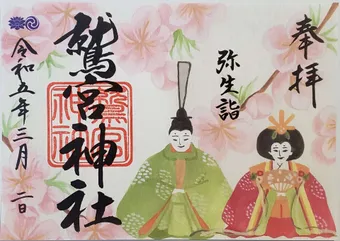 奉拝
弥生詣
鷲宮神社
鷲宮神社
令和五年三月二日